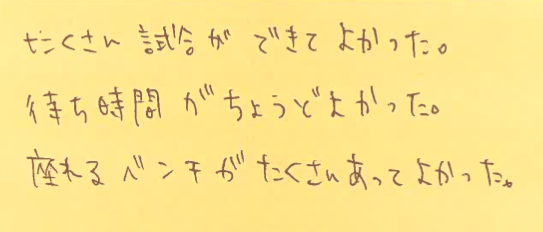 たくさん試合ができてよかった。
待ち時間がちょうどよかった。
座れるベンチがたくさんあってよかった。